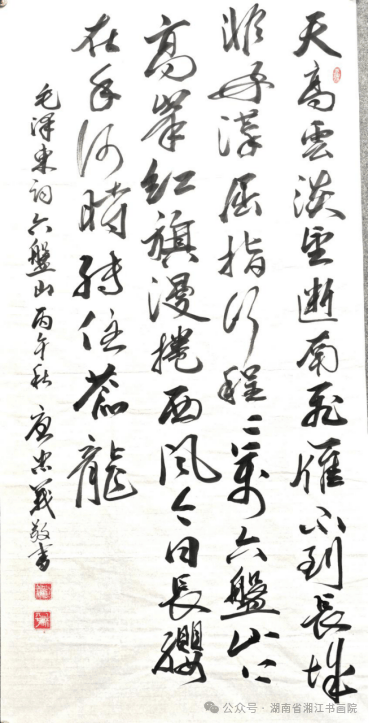 天高雲淡望断南飛雁不到長城
非好漢屈指行程二万六盤山上
高峯紅旗漫捲西風今日長纓
在手何時縛住蒼龍
毛澤東詞六盤山丙午秋 唐忠義敬書
公众号 · 湖南省湘江书画院